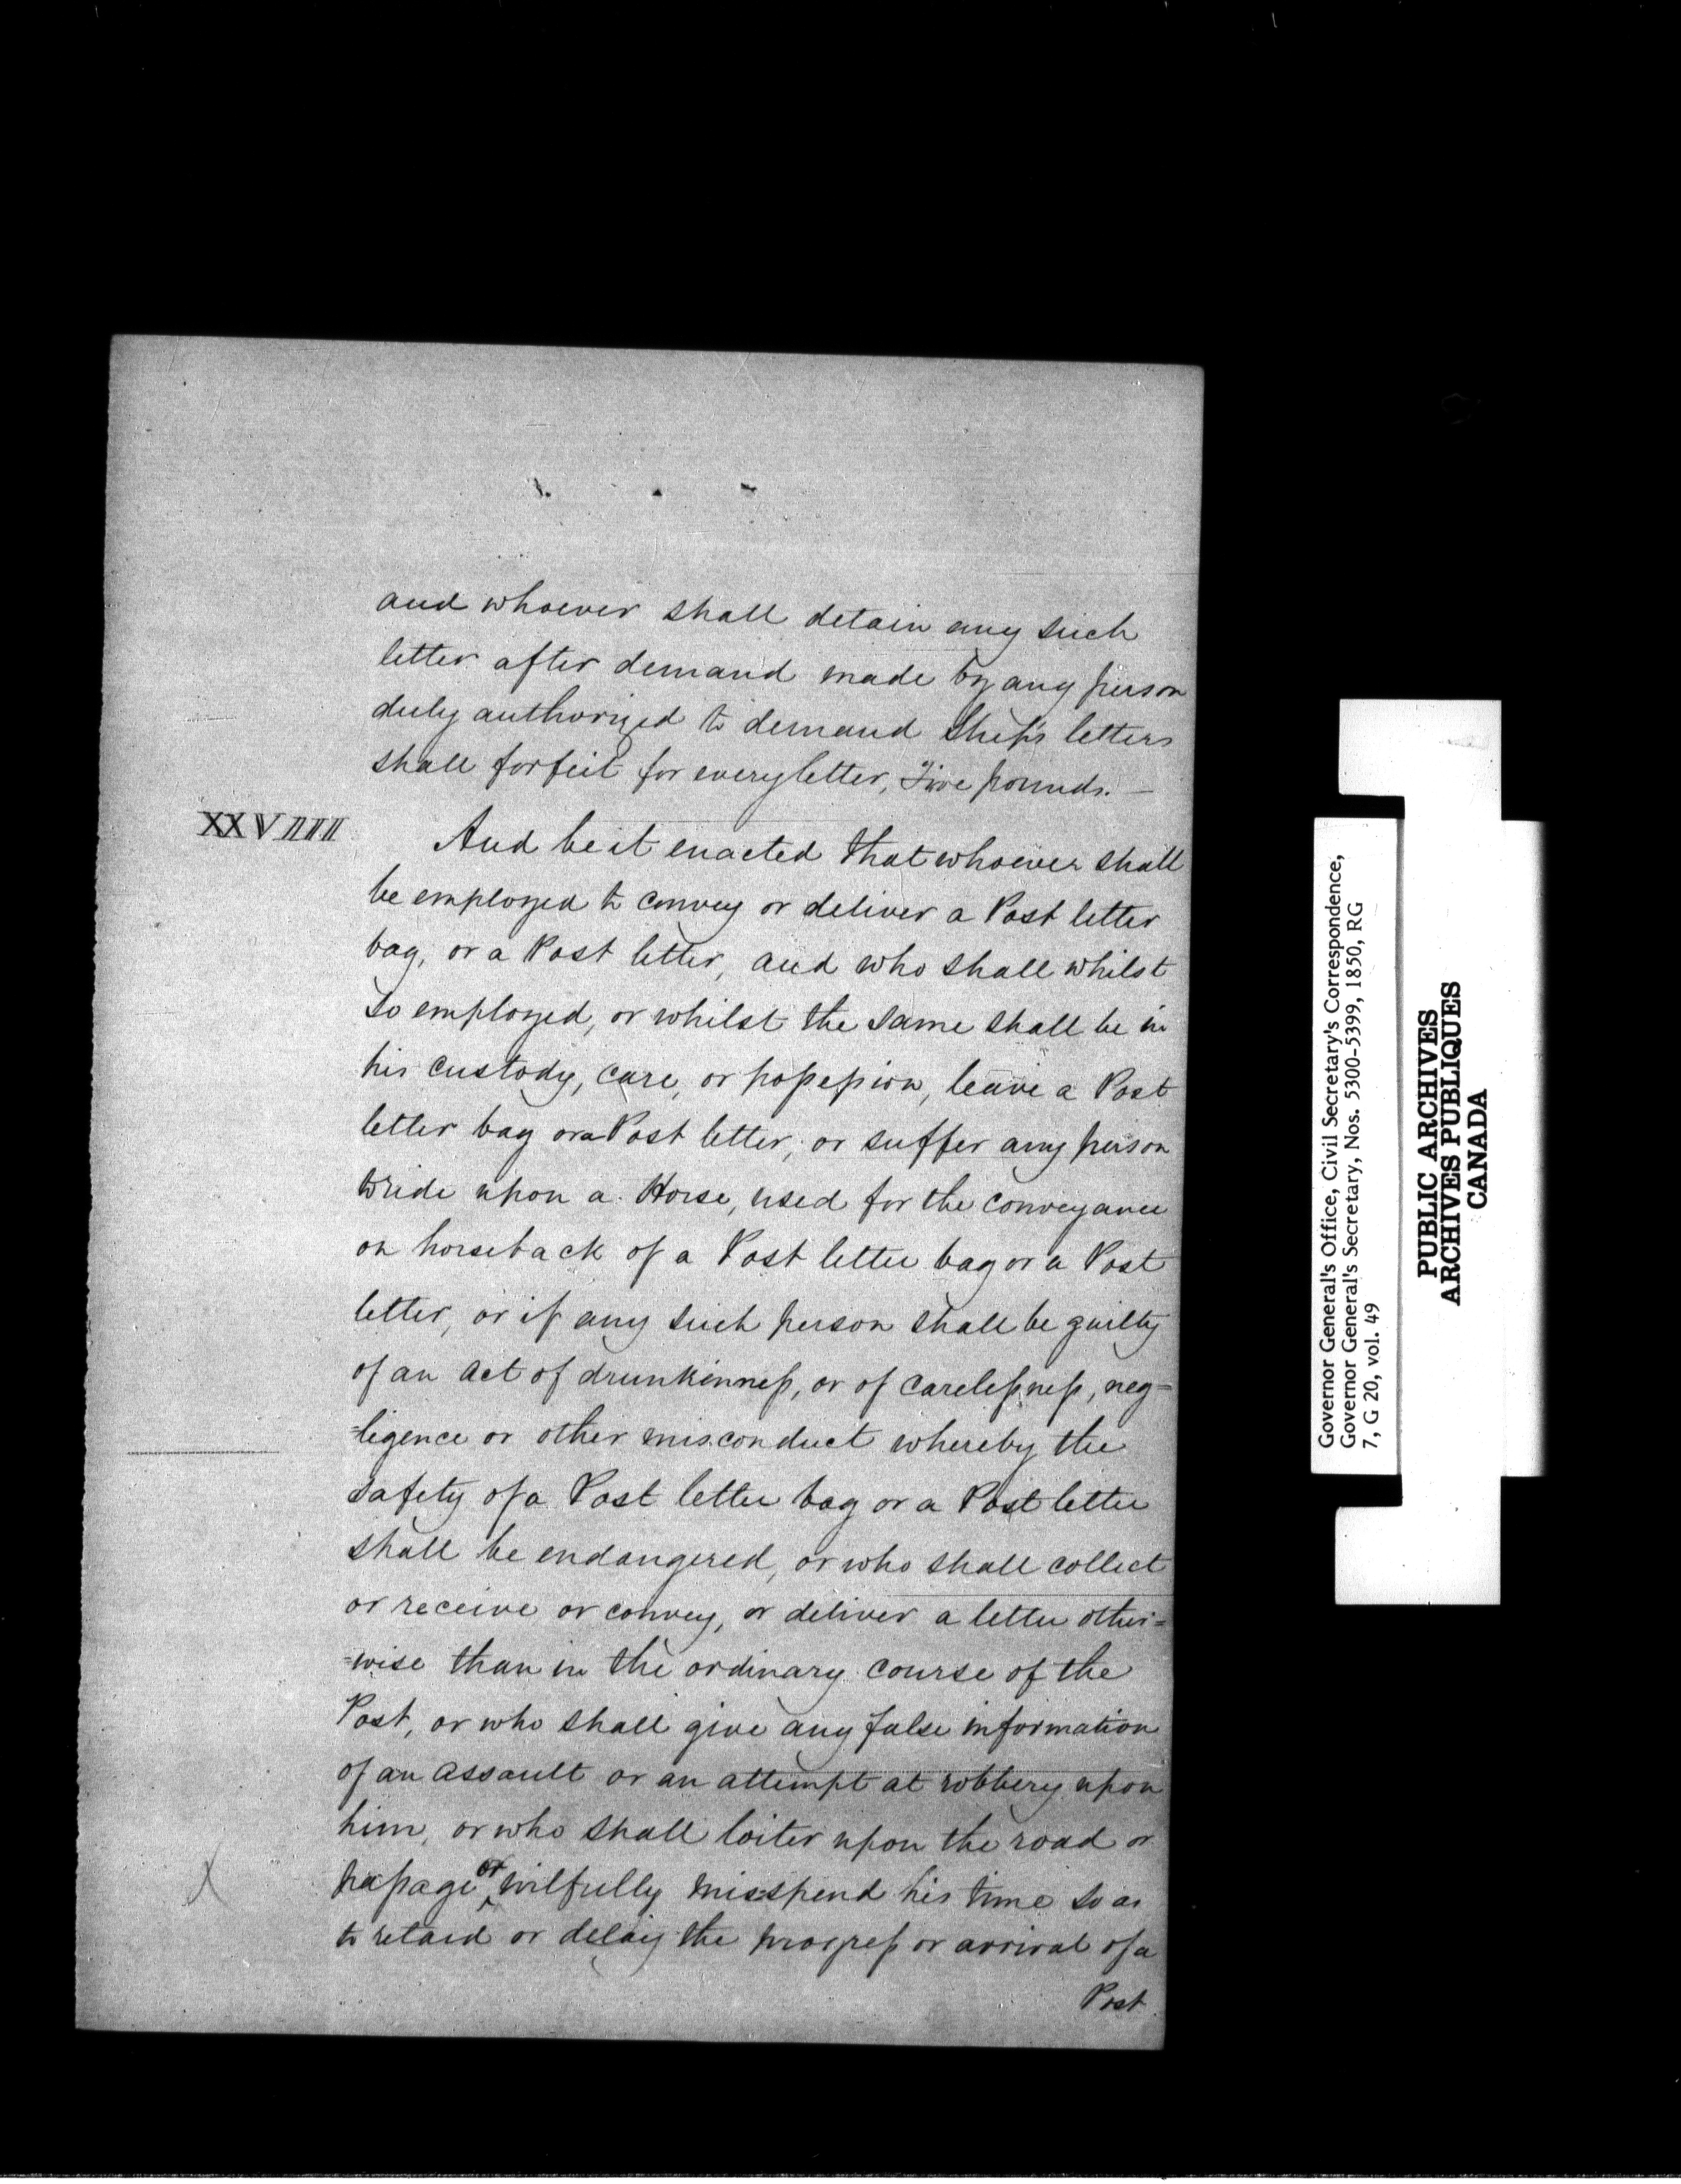 and whoever shall detain any such
letter after demand made by any person
duly authorized to demand Ship's letters
shall forfeit for every letter, Five pounds. —
XXVIIII
And be it enacted that whoever shall
be employed to convey or deliver a Post letter
bag, or a Post letter, and who shall whilst
so employed, or whilst the same shall be in
his custody, care, or possession, leave a Post
letter bag or a Post letter, or suffer any person
to ride upon a Horse, used for the conveyance
on horseback of a Post letter bag or a Post
letter, or if any such person shall be guilty
of an act of drunkinness, or of carelessness, neg=
=ligence or other misconduct whereby the
safety of a Post letter bag or a Post letter
shall be endangered, or who shall collect
or receive or convey, or deliver a letter other=
=wise than in the ordinary course of the
Post, or who shall give any false information
of an assault or an attempt at robbery upon
him, or who shall loiter upon the road or
passage or wilfully misspend his time so as
to retard or delay the progress or arrival of a
Post
Governor General's Office, Civil Secretary's Correspondence,
Governor General's Secretary, Nos. 5300-5399, 1850, RG
7, G 20, vol. 49
PUBLIC ARCHIVES
ARCHIVES PUBLIQUES
CANADA